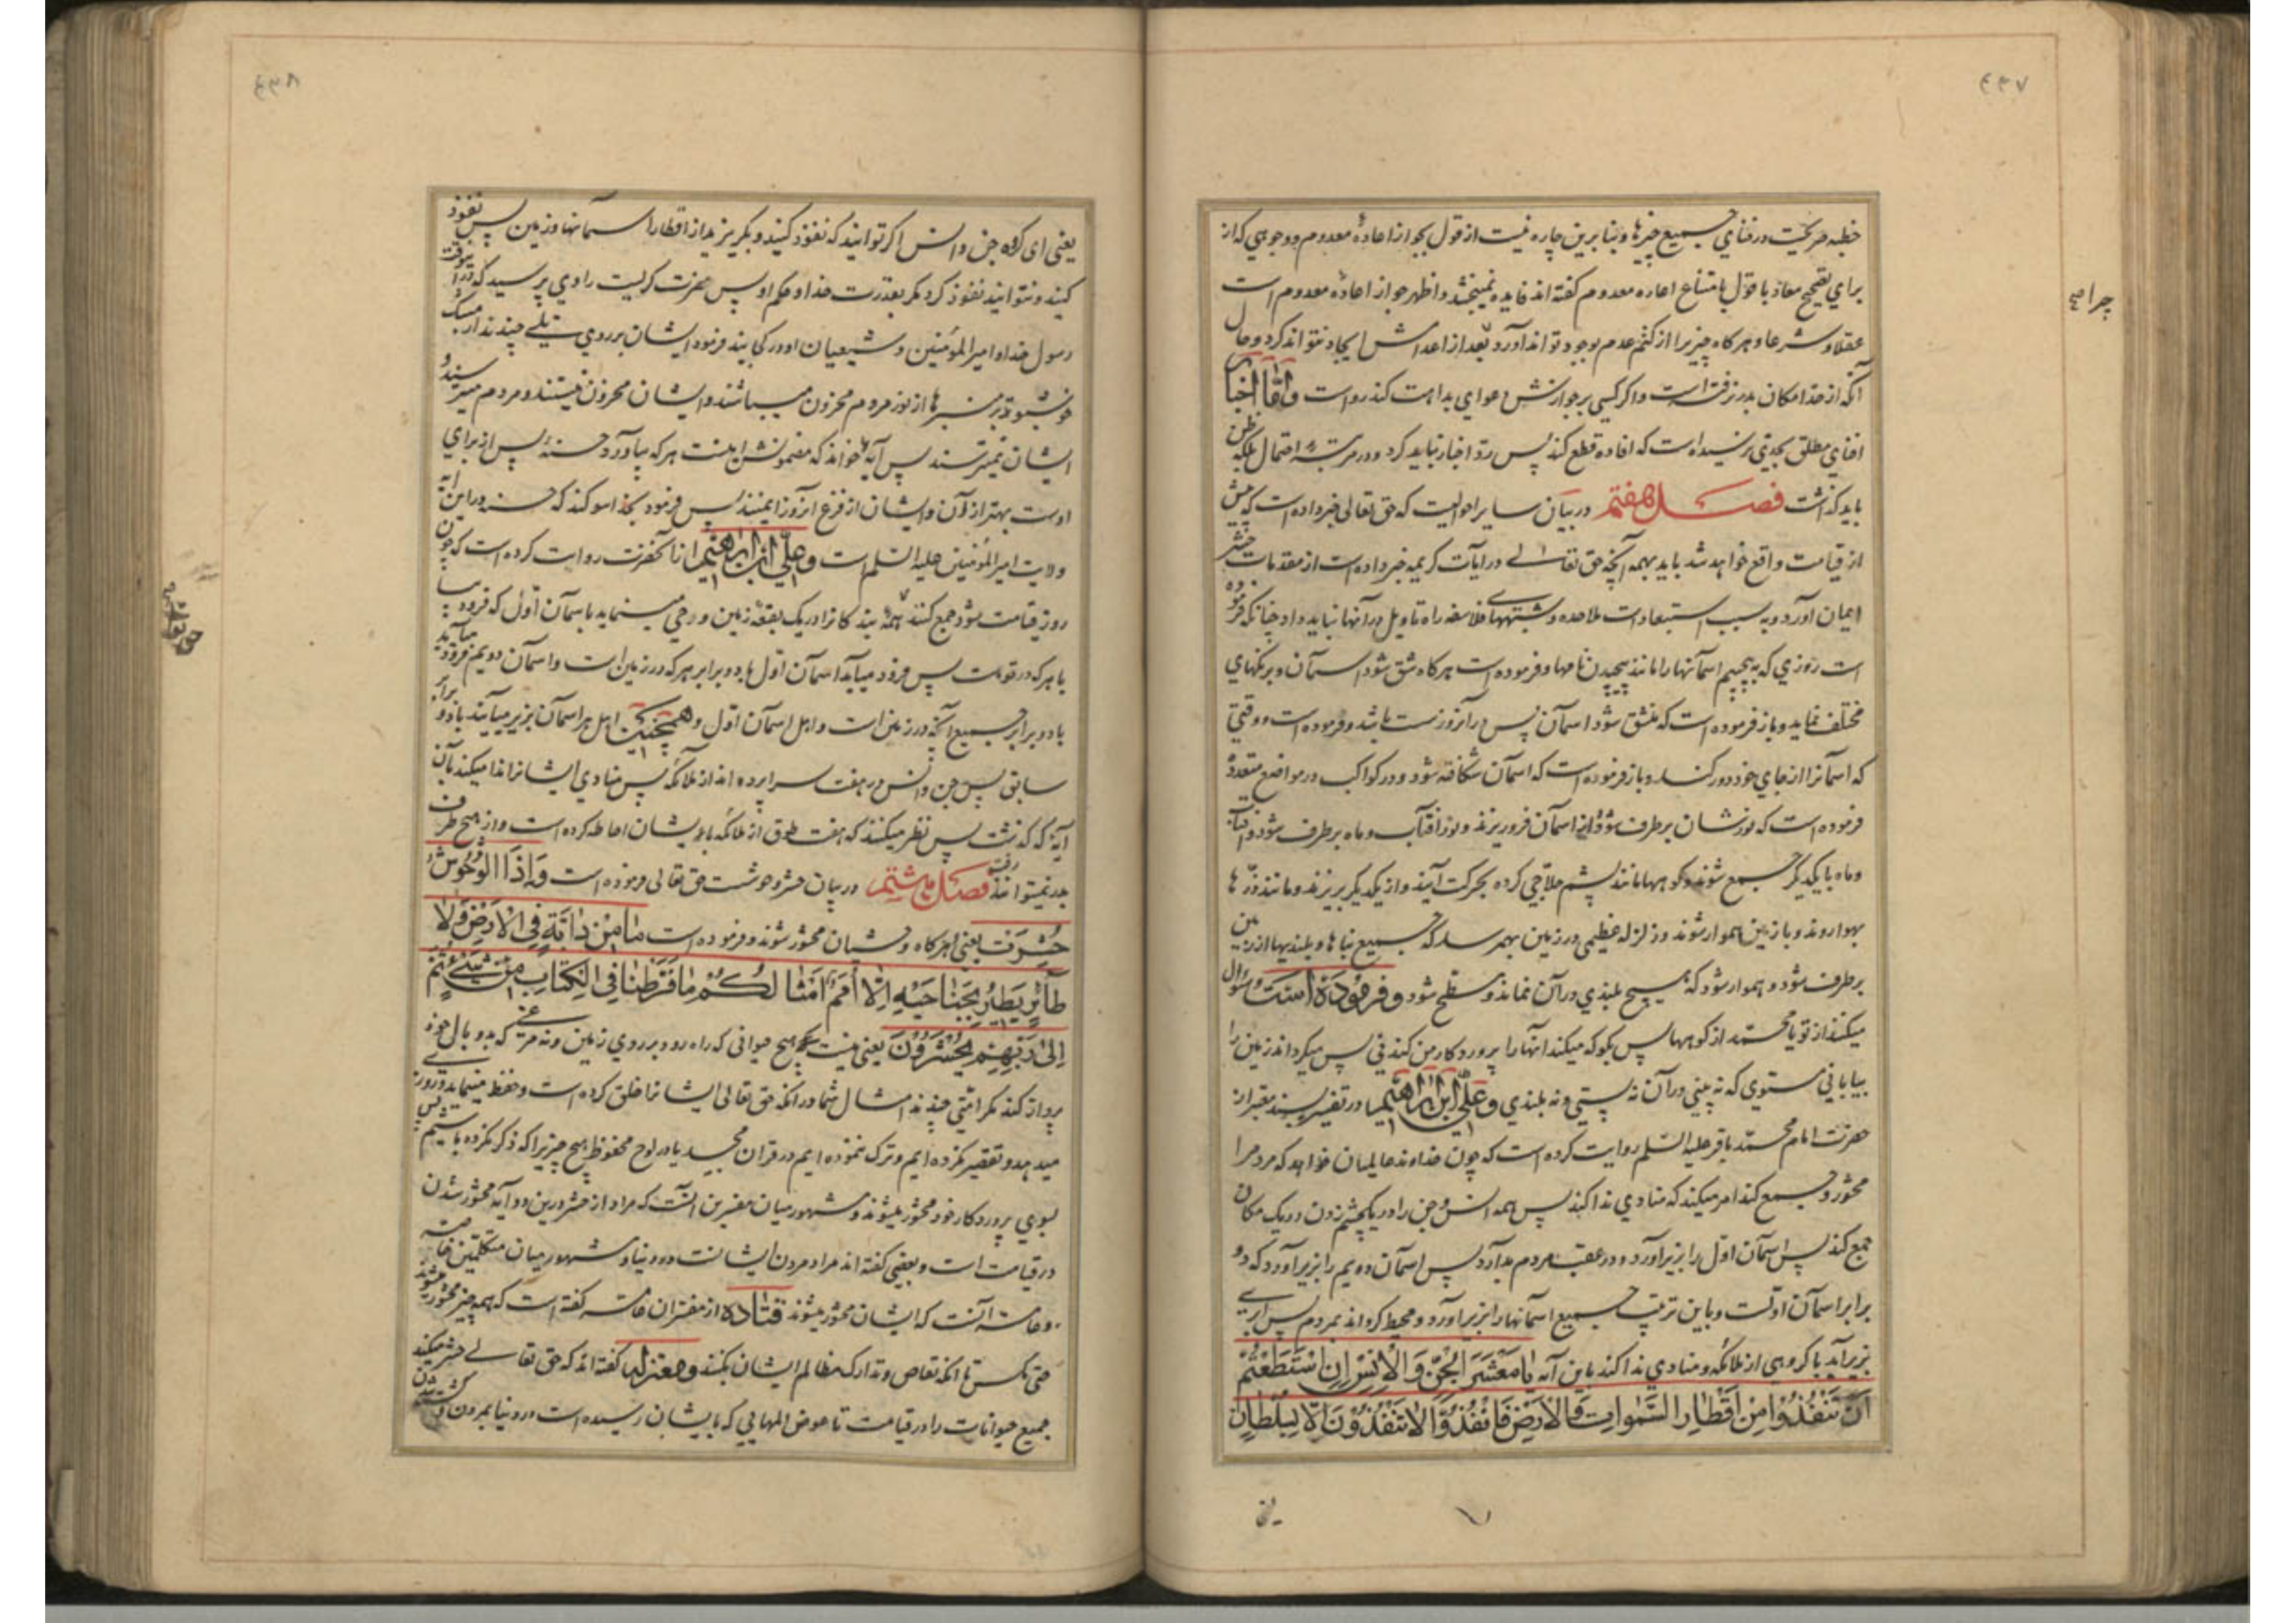 ٤٣٧
خطبه صریحست در فنای جمیع چیزها و بنا برین چاره نیست از قول بجواز اعادهٔ معدوم و وجوهی که از
برای تصحیح معاد با قول بامتناع اعاده معدوم گفته اند فایده نمیبخشد و اظهر جواز اعادهٔ معدوم است
عقلا و شرعا و هر گاه چیزیرا از کتم عدم بوجود تواند آورد بعد از اعدامش ایجاد نتواند کرد و حال
چرا صح
آنکه از حد امکان بدر نرفته است و اگر کسی بر جوازش دعوای بداهت کند رواست و امّا اخبار
افنای مطلق بحدی نرسیده است که افاده قطع کند پس ردّ اخبار نباید کرد و در مرتبهٔ احتمال بلکه ظن
باید گذاشت فصل هفتم در بیان سایر احوالیست که حق تعالی خبر داده است که پیش
از قیامت واقع خواهد شد باید بهمه آنچه حق تعالی در آیات کریمه خبر داده است از مقدمات حشر
ایمان آورد و به سبب استبعادات ملاحده و شبهتهای فلاسفه راه تاویل در آنها نباید داد چنانکه فرموده
است روزی که به پیچیم آسمانها را مانند پیچیدن نامها و فرموده است هر گاه شق شود آسمان و برنگهای
مختلف نماید و باز فرموده است که منشق شود آسمان پس در آنروز سست باشد و فرموده است و وقتی
که آسمانرا از جای خود دور کنند و باز فرموده است که آسمان شکافته شود و در کواکب در مواضع متعدد
فرموده است که نورشان برطرف شود و از آسمان فرو ریزند و نور آفتاب و ماه برطرف شود و آفتاب
و ماه با یکدیگر جمع شوند و کوهها مانند پشم حلاجی کرده بحرکت آیند و از یکدیگر بریزند و مانند ذرّه ها
بهوا روند و با زمین هموار شوند و زلزله عظیمی در زمین بهم رسد که جمیع بناها و بلندیها از زمین
برطرف شود و هموار شود که هیچ بلندی در آن نماند و مسطح شود و فرموده است و سؤال
میکنند از تو یا محمّد از کوهها پس بگو که میکند آنها را پروردگار من کندنی پس میگرداند زمین را
بیابانی مستوی که نه بینی در آن نه پستی و نه بلندی و علیّ ابن ابراهیم در تفسیر بسند معتبر از
حضرت امام محمّد باقر علیه السّلم روایت کرده است که چون خداوند عالمیان خواهد که مردم را
محشور و جمیع کند امر میکند که منادی ندا کند پس همه انس و جن را در یکچشم زدن در یک مکان
جمع کند پس آسمان اوّل را بزیر آورد و در عقب مردم بدارد پس آسمان دویم را بزیر آورد که دو
برابر آسمان اوّلست و باین ترتیب جمیع آسمانها را بزیر آورد و محیط گرداند بمردم پس ابری
بزیر آید با گروهی از ملائکه و منادی ندا کند باین آیه یَا مَعْشَرَ الْجِنِّ وَ الْاِنْسِ اِنِ اسْتَطَعْتُمْ
اَنْ تَنْفُذُوا مِنْ اَقْطَارِ السَّمٰوَاتِ وَ الْاَرْضِ فَانْفُذُوا لَا تَنْفُذُوْنَ اِلَّا بِسُلْطَانٍ
٤٣٨
یعنی ای گروه جن و انس اگر توانید که نفوذ کنید و بگریزید از اقطار آسمانها و زمین پس نفوذ
کنید و نتوانید نفوذ کرد مگر بقدرت خدا و حکم او پس حضرت گریست راوی پرسید که در آنوقت
رسول خدا و امیر المؤمنین و شیعیان او در کجایند فرمود ایشان بر روی تلی چندند از مشک
خوشبو و بر منبرها از نور مردم محزون میباشند و ایشان محزون نیستند و مردم میترسند و
ایشان نمیترسند پس آیه خواند که مضمونش اینست هر که بیاورد حسنه پس از برای
اوست بهتر از آن و ایشان از فزع آنروز ایمنند پس فرمود بخدا سوگند که حسنه در این آیه
ولایت امیر المؤمنین علیه السّلم است و علیّ ابن ابراهیم از آنحضرت روایت کرده است که چون
روز قیامت شود جمع کند همهٔ بندگانرا در یک بقعهٔ زمین و وحی مینماید باسمان اوّل که فرود بیا
با هر که در تو است پس فرود میآید آسمان اوّل با دو برابر هر که در زمین است و آسمان دویم فرود میآید
با دو برابر جمیع آنچه در زمین است و اهل آسمان اوّل و همچنین اهل هر آسمان بزیر میآیند با دو برابر
سابق پس جن و انس در هفت سراپرده اند از ملائکه پس منادی ایشانرا ندا میکند بآن
آیهٔ که گذشت پس نظر میکنند که هفت طوق از ملائکه بایشان احاطه کرده است و از هیچ طرف
بدر نمیتوانند رفت فصل هشتم در بیان حشر وحوشست حق تعالی فرموده است وَ اِذَا الْوُحُوْشُ
حُشِرَتْ یعنی هر گاه وحشیان محشور شوند و فرموده است مَا مِنْ دَابَّةٍ فِی الْاَرْضِ وَ لَا
طَائِرٍ یَطِیْرُ بِجَنَاحَیْهِ اِلَّا اُمَمٌ اَمْثَالُکُمْ مَا فَرَّطْنَا فِی الْکِتَابِ مِنْ شَیْءٍ ثُمَّ
اِلٰی رَبِّهِمْ یُحْشَرُوْنَ یعنی نیست هیچ حیوانی که راه رود بر روی زمین و نه مرغی که بدو بال خود
پرواز کند مگر امّتی چندند امثال شما در آنکه حق تعالی ایشانرا خلق کرده است و حفظ مینماید و روزی
میدهد و تقصیر نکرده ایم و ترک ننموده ایم در قران مجید یا در لوح محفوظ هیچ چیزیرا که ذکر نکرده باشیم پس
بسوی پروردگار خود محشور میشوند و مشهور میان مفسرین آنست که مراد از حشر درین دو آیه محشور شدن
در قیامت است و بعضی گفته اند مراد مردن ایشانست در دنیا و مشهور میان متکلّمین خاصه
و عامه آنست که ایشان محشور میشوند قتاده از مفسّران عامه گفته است که همه چیز محشور میشوند
حتی مگس تا آنکه تقاص و تدارک مظالم ایشان بکنند و معتزله گفته اند که حق تعالی حشر میکند
جمیع حیوانات را در قیامت تا عوض المهایی که بایشان رسیده است در دنیا بمردن و کشته شدن